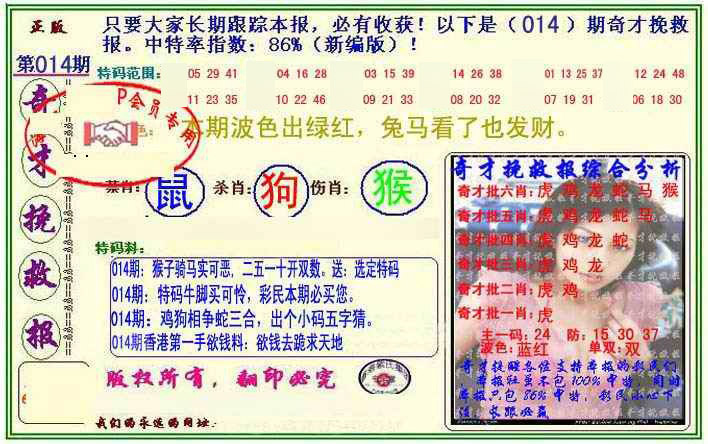 正版
只要大家长期跟踪本报，必有收获！以下是（014）期奇才挽救
报。中特率指数：86%（新编版）！
第014期
奇
才
挽
救
报
特码范围：
05 29 41
04 16 28
03 15 39
14 26 38
01 13 25 37
12 24 48
11 23 35
10 22 46
09 21 33
08 20 32
07 19 31
06 18 30
P会员专用
色：本期波色出绿红，兔马看了也发财。
禁肖：鼠
杀肖：狗
伤肖：猴
特码料：
014期：猴子骑马实可恶，二五一十开双数。送：选定特码
014期：特码牛脚买可怜，彩民本期必买您。
014期：鸡狗相争蛇三合，出个小码五字猜。
014期香港第一手欲钱料：欲钱去跪求天地
版权所有，翻印必究
我们的永远的网址：
奇才挽救报综合分析
奇才批六肖：虎 鸡 龙 蛇 马 猴
奇才批五肖：虎 鸡 龙 蛇 马
奇才批四肖：虎 鸡 龙 蛇
奇才批三肖：虎 鸡 龙
奇才批二肖：虎 鸡
奇才批一肖：虎
主一码：24 防：15 30 37
波色：蓝红 单双：双
奇才提醒各位支持本报的彩民们
本报社虽不包100%中特，同时
本报只包86%中特，彩民小心下
注，长跟必赢